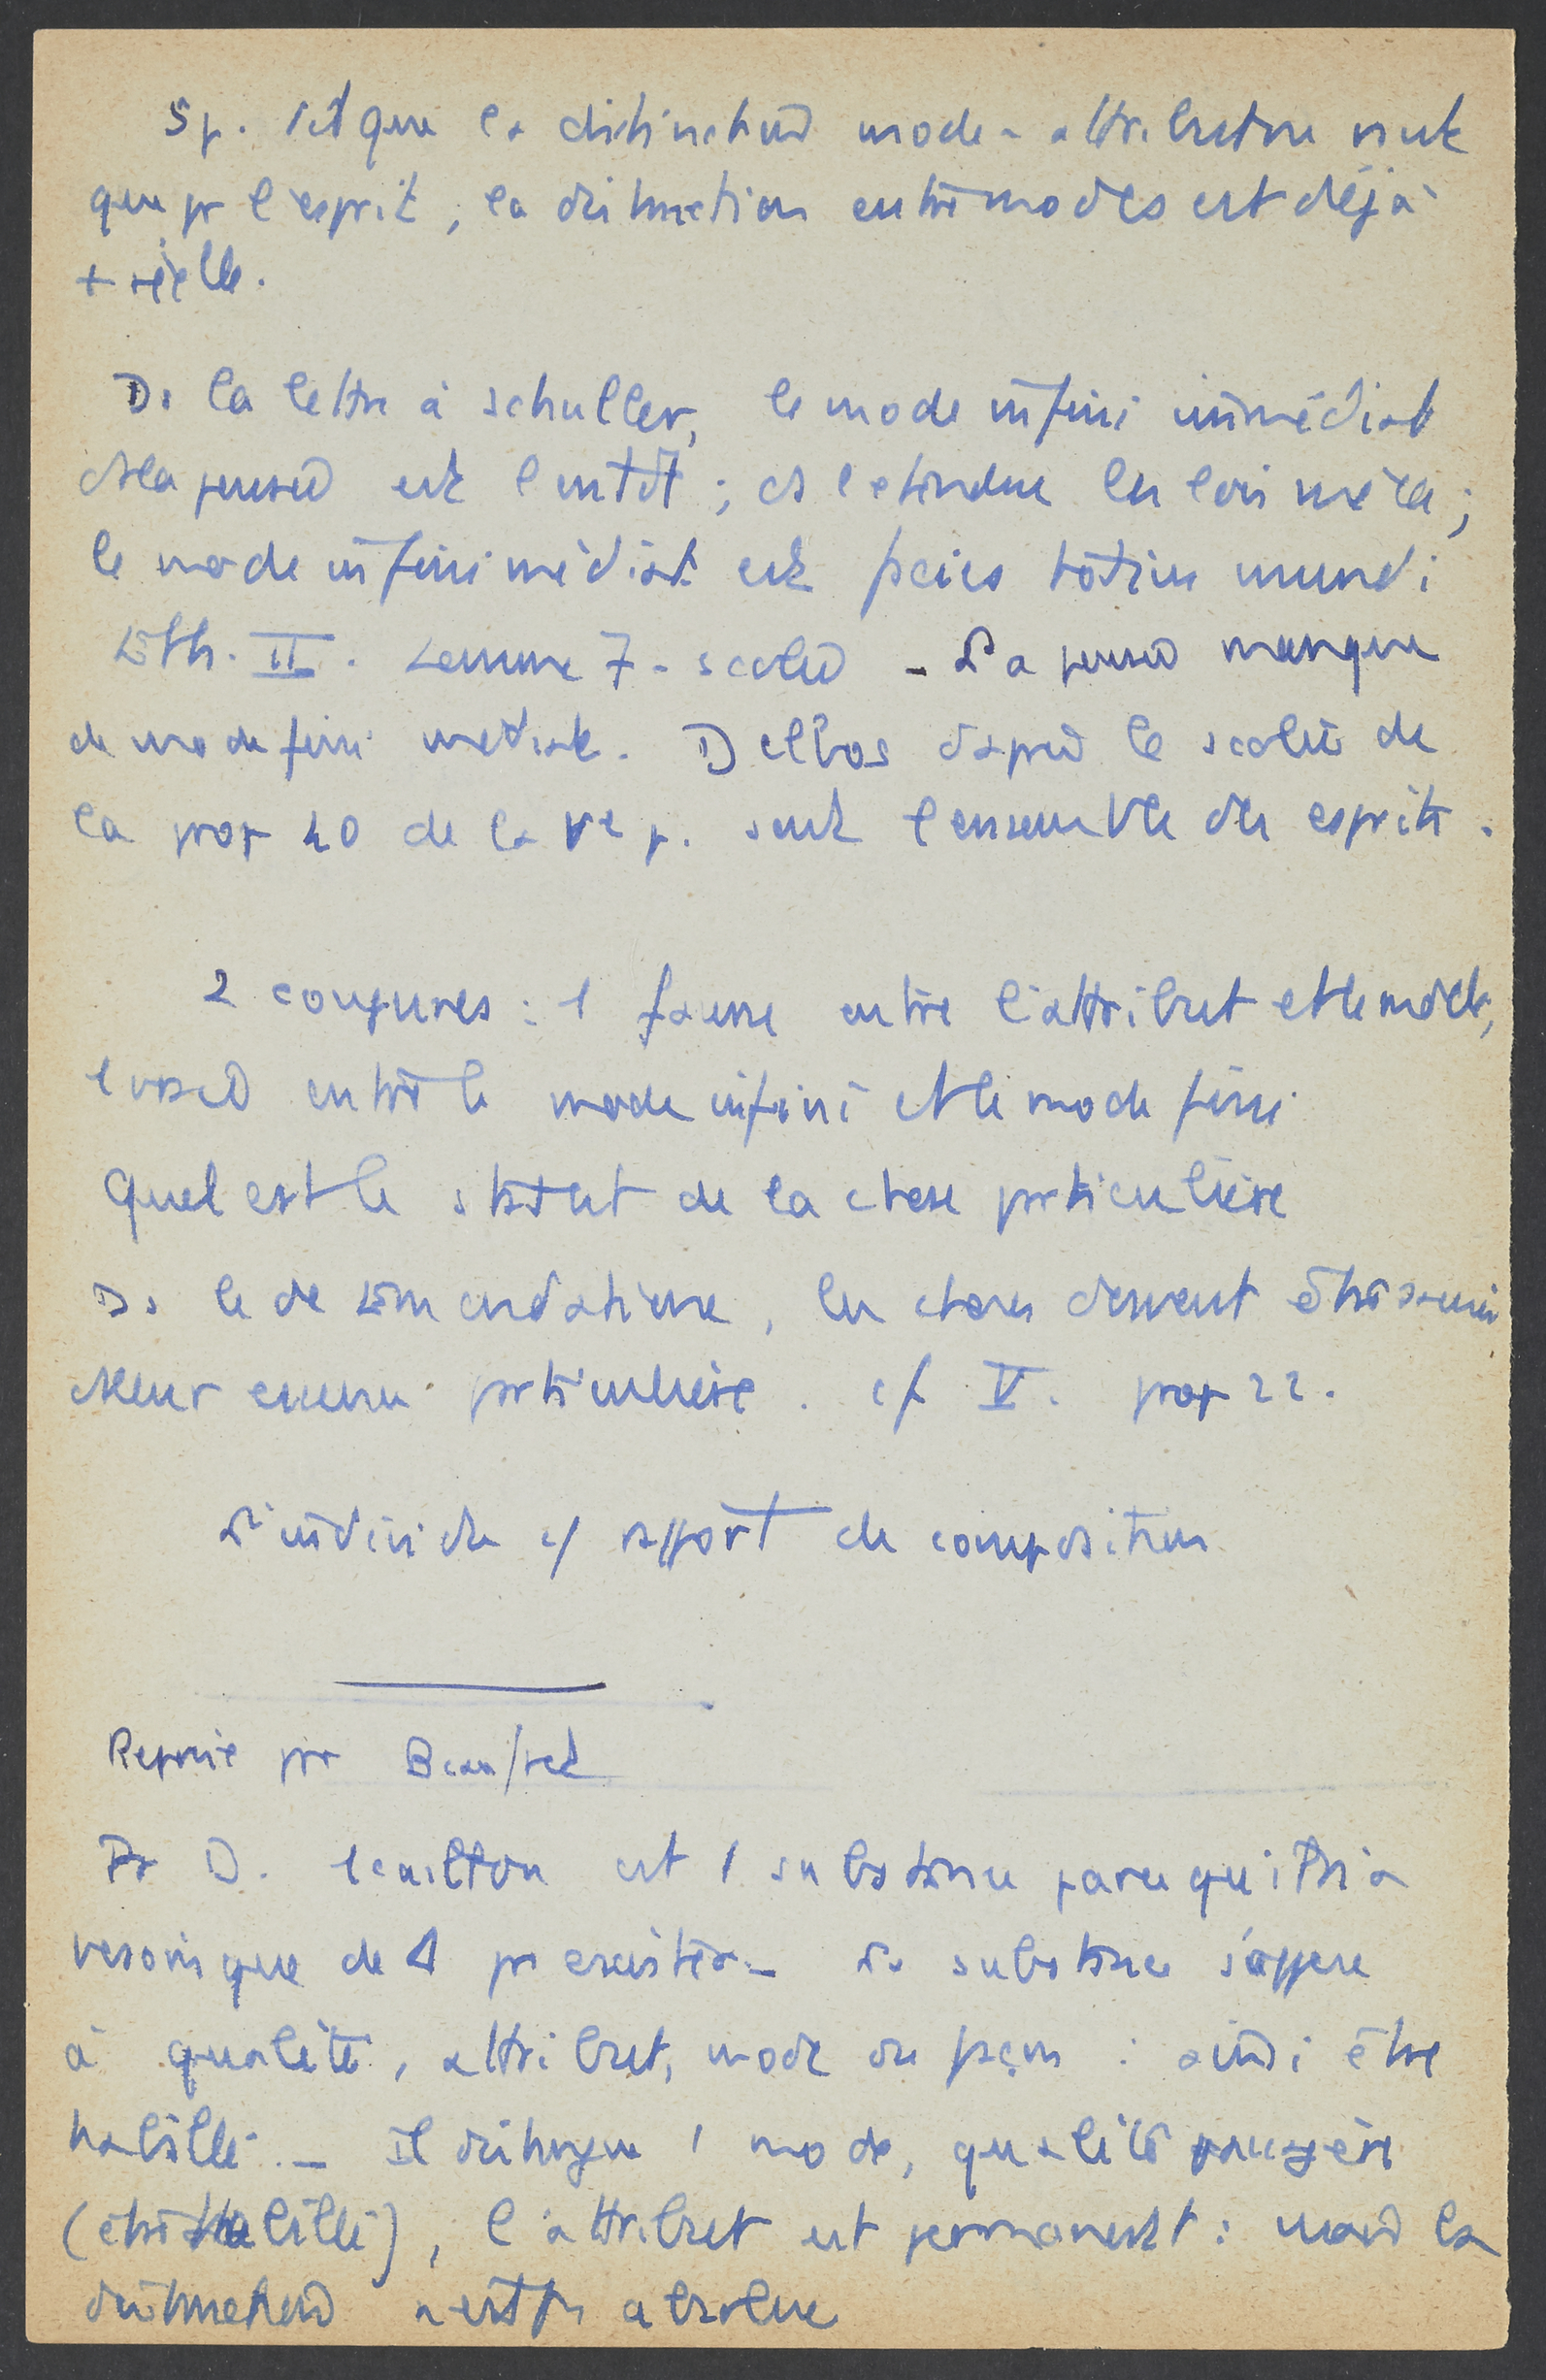 Sp. dit que la distinction mode-attribut ne vaut
que pr l'esprit, la distinction entre modes est déjà
+ réelle.
Ds la lettre à Schuller, le mode infini immédiat
de la pensée est l'entdt ; ds l'etendue les lois méca ;
le mode infini médiat est facies totius mundi
Eth. II. Lemme 7 - scolie - La pensée manque
de mode fini médiat. Delbos d'après le scolie de
la prop 40 de la Ve p. veut l'ensemble des esprits.
2 coupures : 1 fausse entre l'attribut et le mode,
1 vraie entre le mode infini et le mode fini
Quel est le statut de la chose particulière
Ds le de Emendatione, les choses doivent être
de leur essence particulière. cf V. prop 22.
L'individu c/ rapport de composition
Reprise par Beaufret
Pr D. le caillou est 1 substance parce qu'il n'a
besoin que de Δ pr exister - La substance s'oppose
à qualité, attribut, mode ou façon : ainsi être
habillé. - Il distingue 1 mode, qualité passagère
(être habillé), l'attribut est permanent : mais la
distinction n'est ps absolue